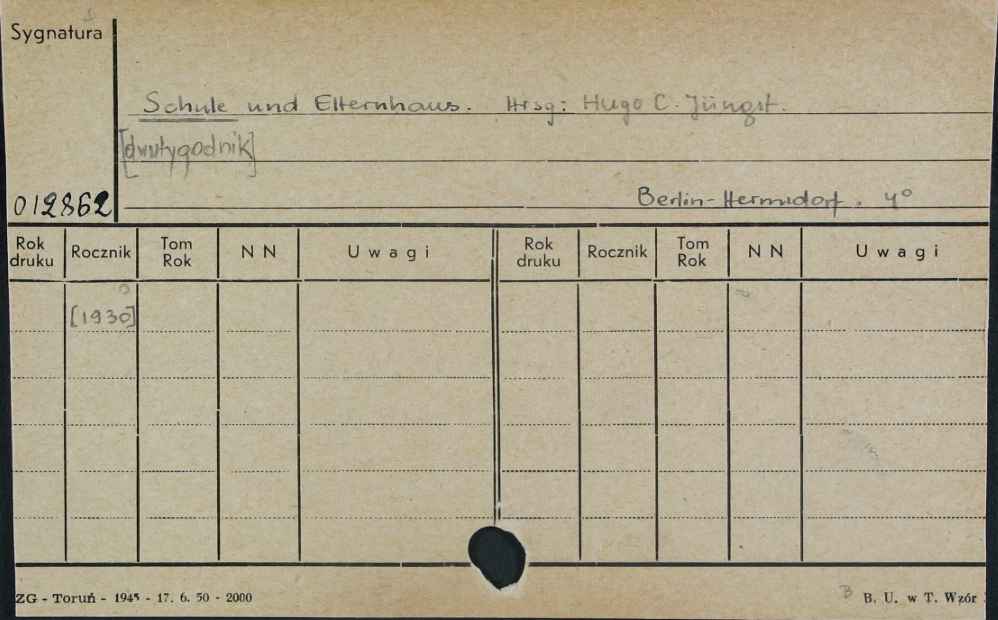 Sygnatura
Schule und Elternhaus. Hrsg: Hugo C. Jüngst.
[dwutygodnik]
Berlin-Hermsdorf. 4°
012862
Rok druku Rocznik Tom Rok NN Uwagi Rok druku Rocznik Tom Rok NN Uwagi
[1930]
ZG - Toruń - 1945 - 17. 6. 50 - 2000
B B. U. w T. Wzór